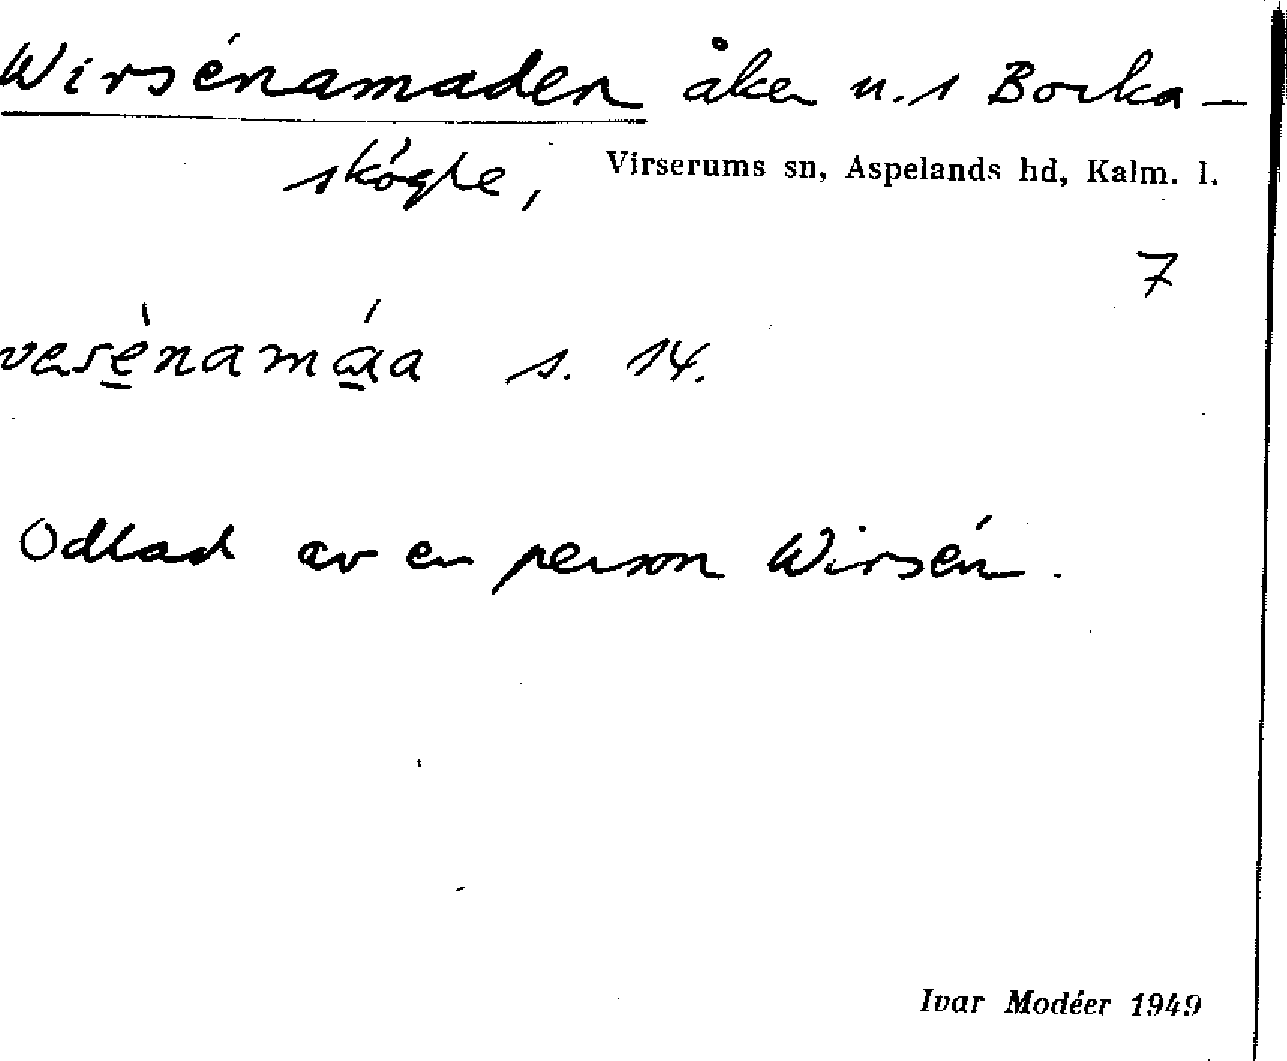 Wirsénamaden åker u. 1 Borka-
skógle,
Virserums sn, Aspelands hd, Kalm. l.
7
s. 14.
Odlad av en person Wirsén.
Ivar Modéer 1949